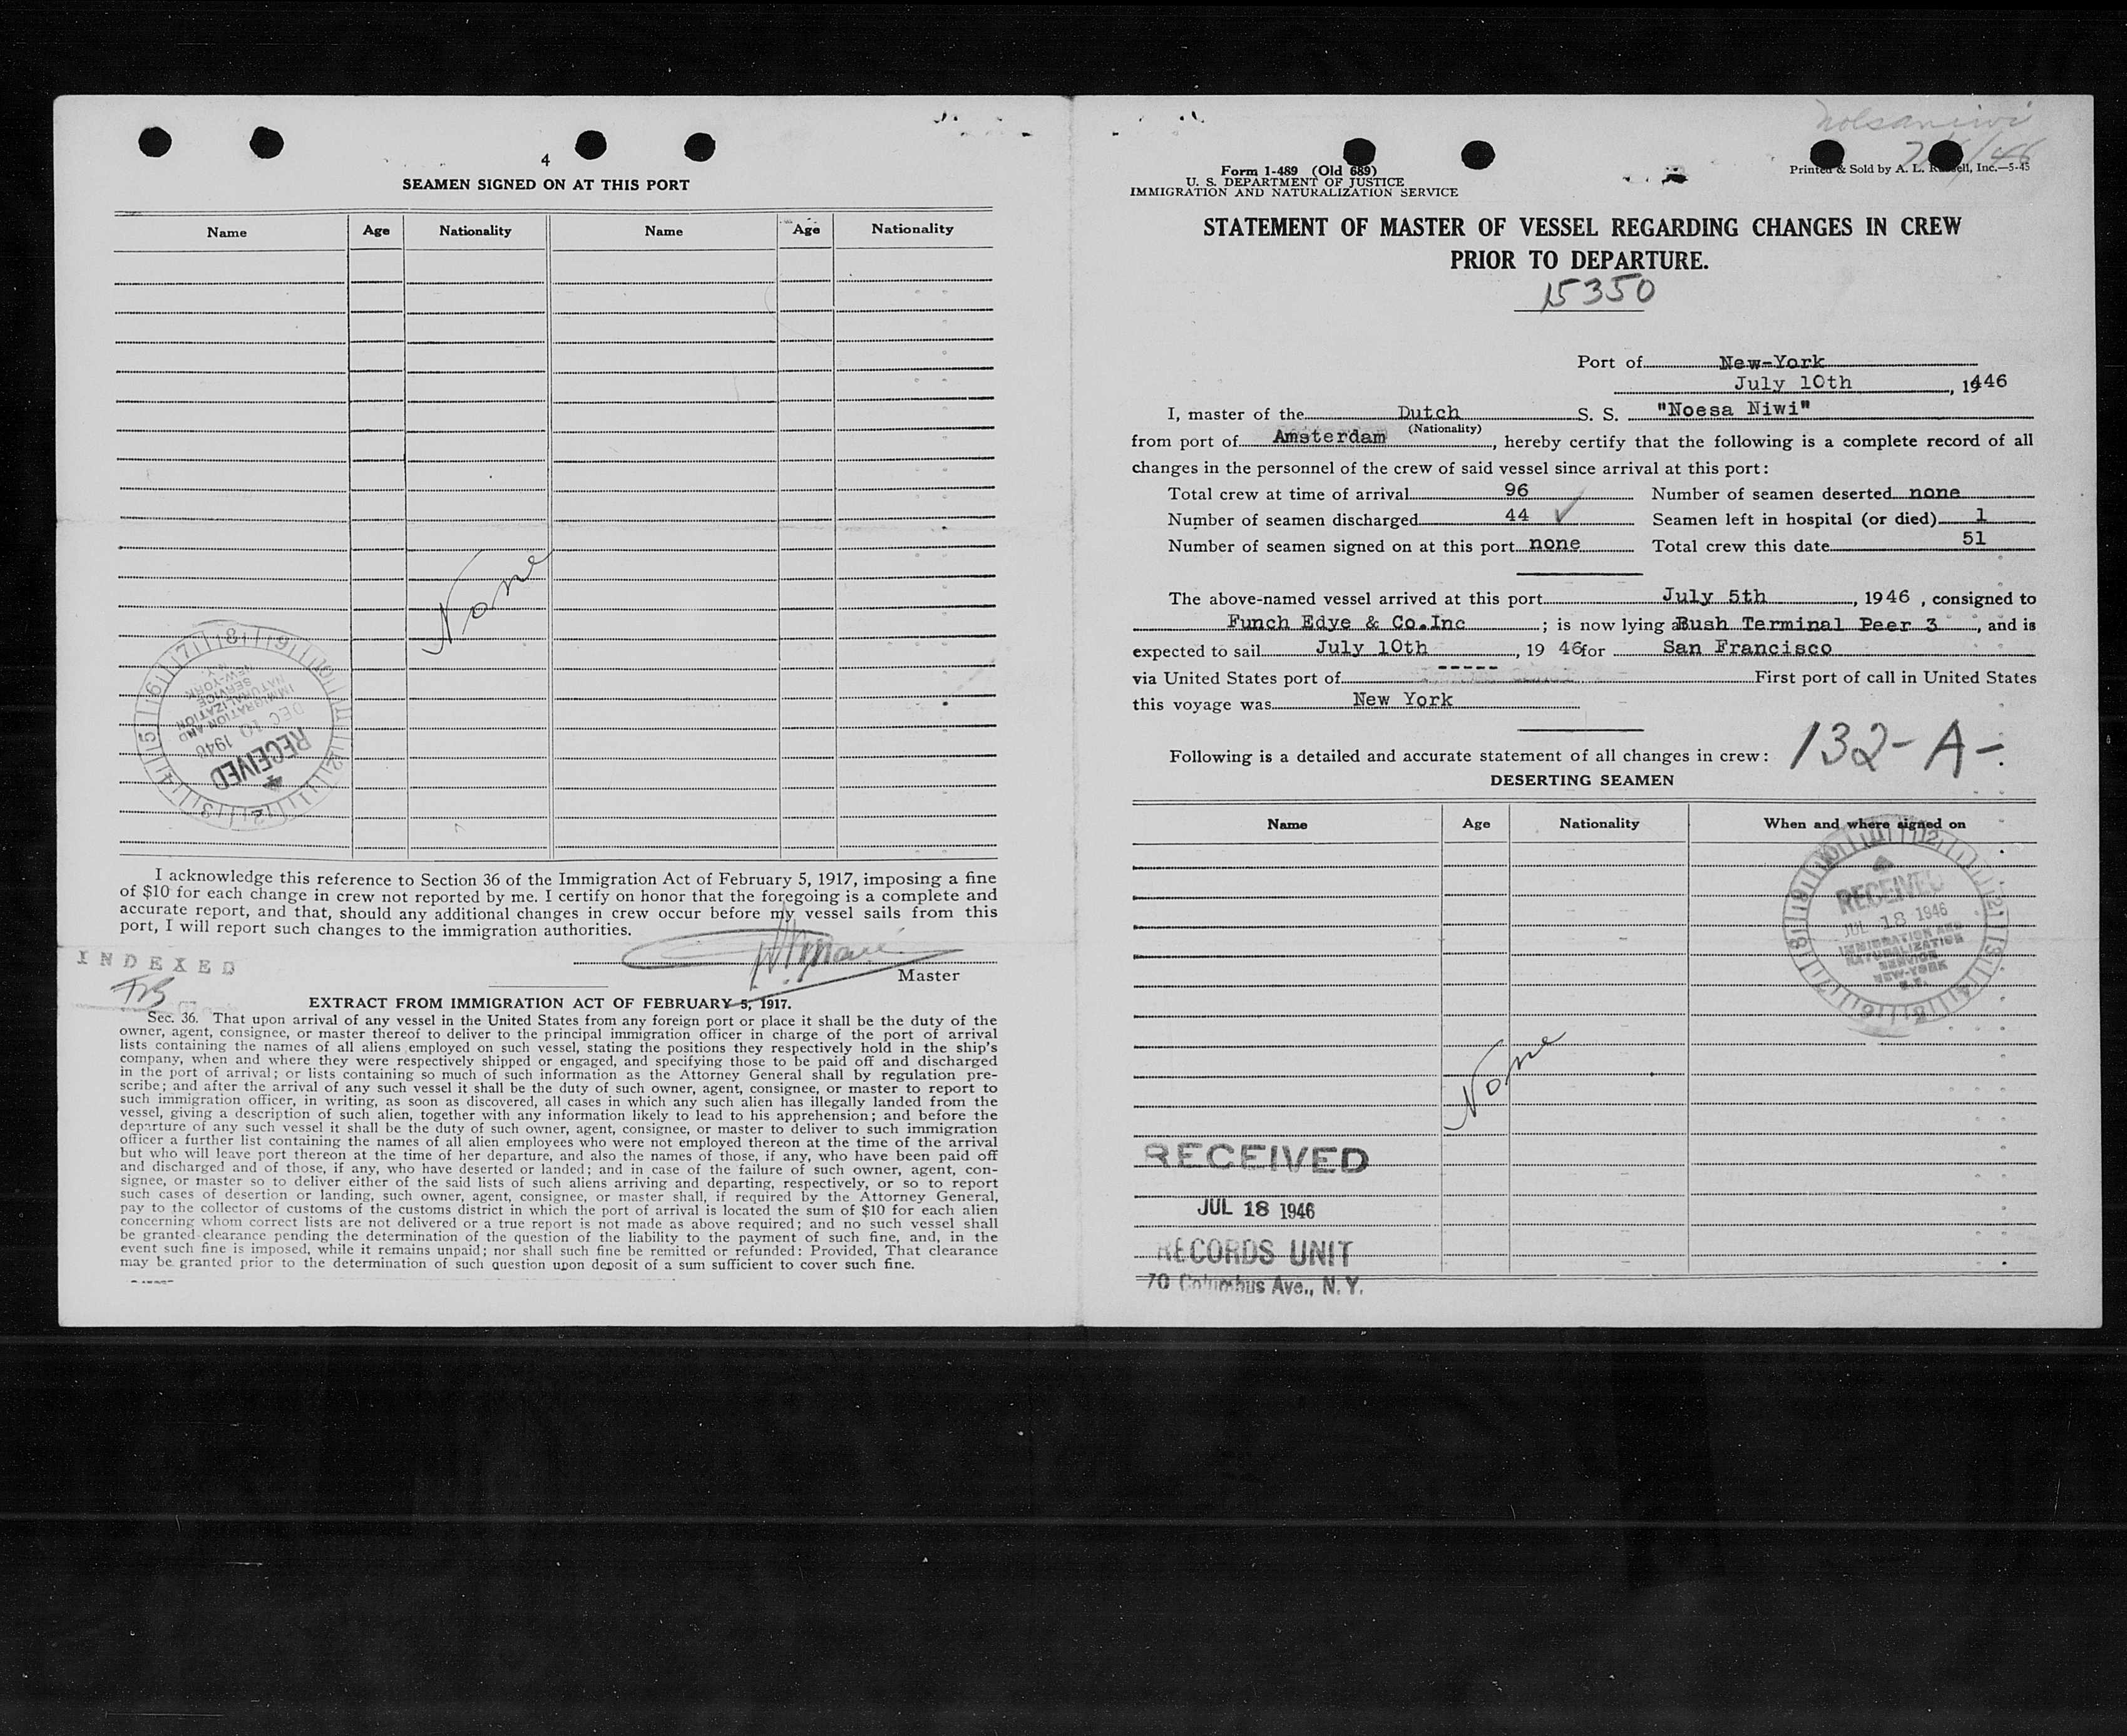 4
SEAMEN SIGNED ON AT THIS PORT
Name Age Nationality Name Age Nationality
None
RECEIVED
DEC 10 1946
IMMIGRATION AND
NATURALIZATION
SERVICE
NEW-YORK
N.Y.
I acknowledge this reference to Section 36 of the Immigration Act of February 5, 1917, imposing a fine
of $10 for each change in crew not reported by me. I certify on honor that the foregoing is a complete and
accurate report, and that, should any additional changes in crew occur before my vessel sails from this
port, I will report such changes to the immigration authorities.
INDEXED
Master
EXTRACT FROM IMMIGRATION ACT OF FEBRUARY 5, 1917.
Sec. 36. That upon arrival of any vessel in the United States from any foreign port or place it shall be the duty of the
owner, agent, consignee, or master thereof to deliver to the principal immigration officer in charge of the port of arrival
lists containing the names of all aliens employed on such vessel, stating the positions they respectively hold in the ship's
company, when and where they were respectively shipped or engaged, and specifying those to be paid off and discharged
in the port of arrival; or lists containing so much of such information as the Attorney General shall by regulation pre-
scribe; and after the arrival of any such vessel it shall be the duty of such owner, agent, consignee, or master to report to
such immigration officer, in writing, as soon as discovered, all cases in which any such alien has illegally landed from the
vessel, giving a description of such alien, together with any information likely to lead to his apprehension; and before the
departure of any such vessel it shall be the duty of such owner, agent, consignee, or master to deliver to such immigration
officer a further list containing the names of all alien employees who were not employed thereon at the time of the arrival
but who will leave port thereon at the time of her departure, and also the names of those, if any, who have been paid off
and discharged and of those, if any, who have deserted or landed; and in case of the failure of such owner, agent, con-
signee, or master so to deliver either of the said lists of such aliens arriving and departing, respectively, or so to report
such cases of desertion or landing, such owner, agent, consignee, or master shall, if required by the Attorney General,
pay to the collector of customs of the customs district in which the port of arrival is located the sum of $10 for each alien
concerning whom correct lists are not delivered or a true report is not made as above required; and no such vessel shall
be granted clearance pending the determination of the question of the liability to the payment of such fine, and, in the
event such fine is imposed, while it remains unpaid; nor shall such fine be remitted or refunded: Provided, That clearance
may be granted prior to the determination of such question upon deposit of a sum sufficient to cover such fine.
Form 1-489 (Old 689)
U. S. DEPARTMENT OF JUSTICE
IMMIGRATION AND NATURALIZATION SERVICE
Printed & Sold by A. L. Russell, Inc.—5-45
STATEMENT OF MASTER OF VESSEL REGARDING CHANGES IN CREW
PRIOR TO DEPARTURE.
15350
Port of New-York
July 10th, 19446
I, master of the Dutch S. S. "Noesa Niwi"
(Nationality)
from port of Amsterdam, hereby certify that the following is a complete record of all
changes in the personnel of the crew of said vessel since arrival at this port:
Total crew at time of arrival 96 Number of seamen deserted none
Number of seamen discharged 44 Seamen left in hospital (or died) 1
Number of seamen signed on at this port none Total crew this date 51
The above-named vessel arrived at this port July 5th, 1946, consigned to
Funch Edye & Co.Inc; is now lying Bush Terminal Peer 3, and is
expected to sail July 10th, 19 46 for San Francisco
via United States port of ----- First port of call in United States
this voyage was New York
Following is a detailed and accurate statement of all changes in crew: 132-A-
DESERTING SEAMEN
Name Age Nationality When and where signed on
RECEIVED
JUL 18 1946
IMMIGRATION AND
NATURALIZATION
SERVICE
NEW-YORK
N.Y.
None
RECEIVED
JUL 18 1946
RECORDS UNIT
70 Columbus Ave., N. Y.